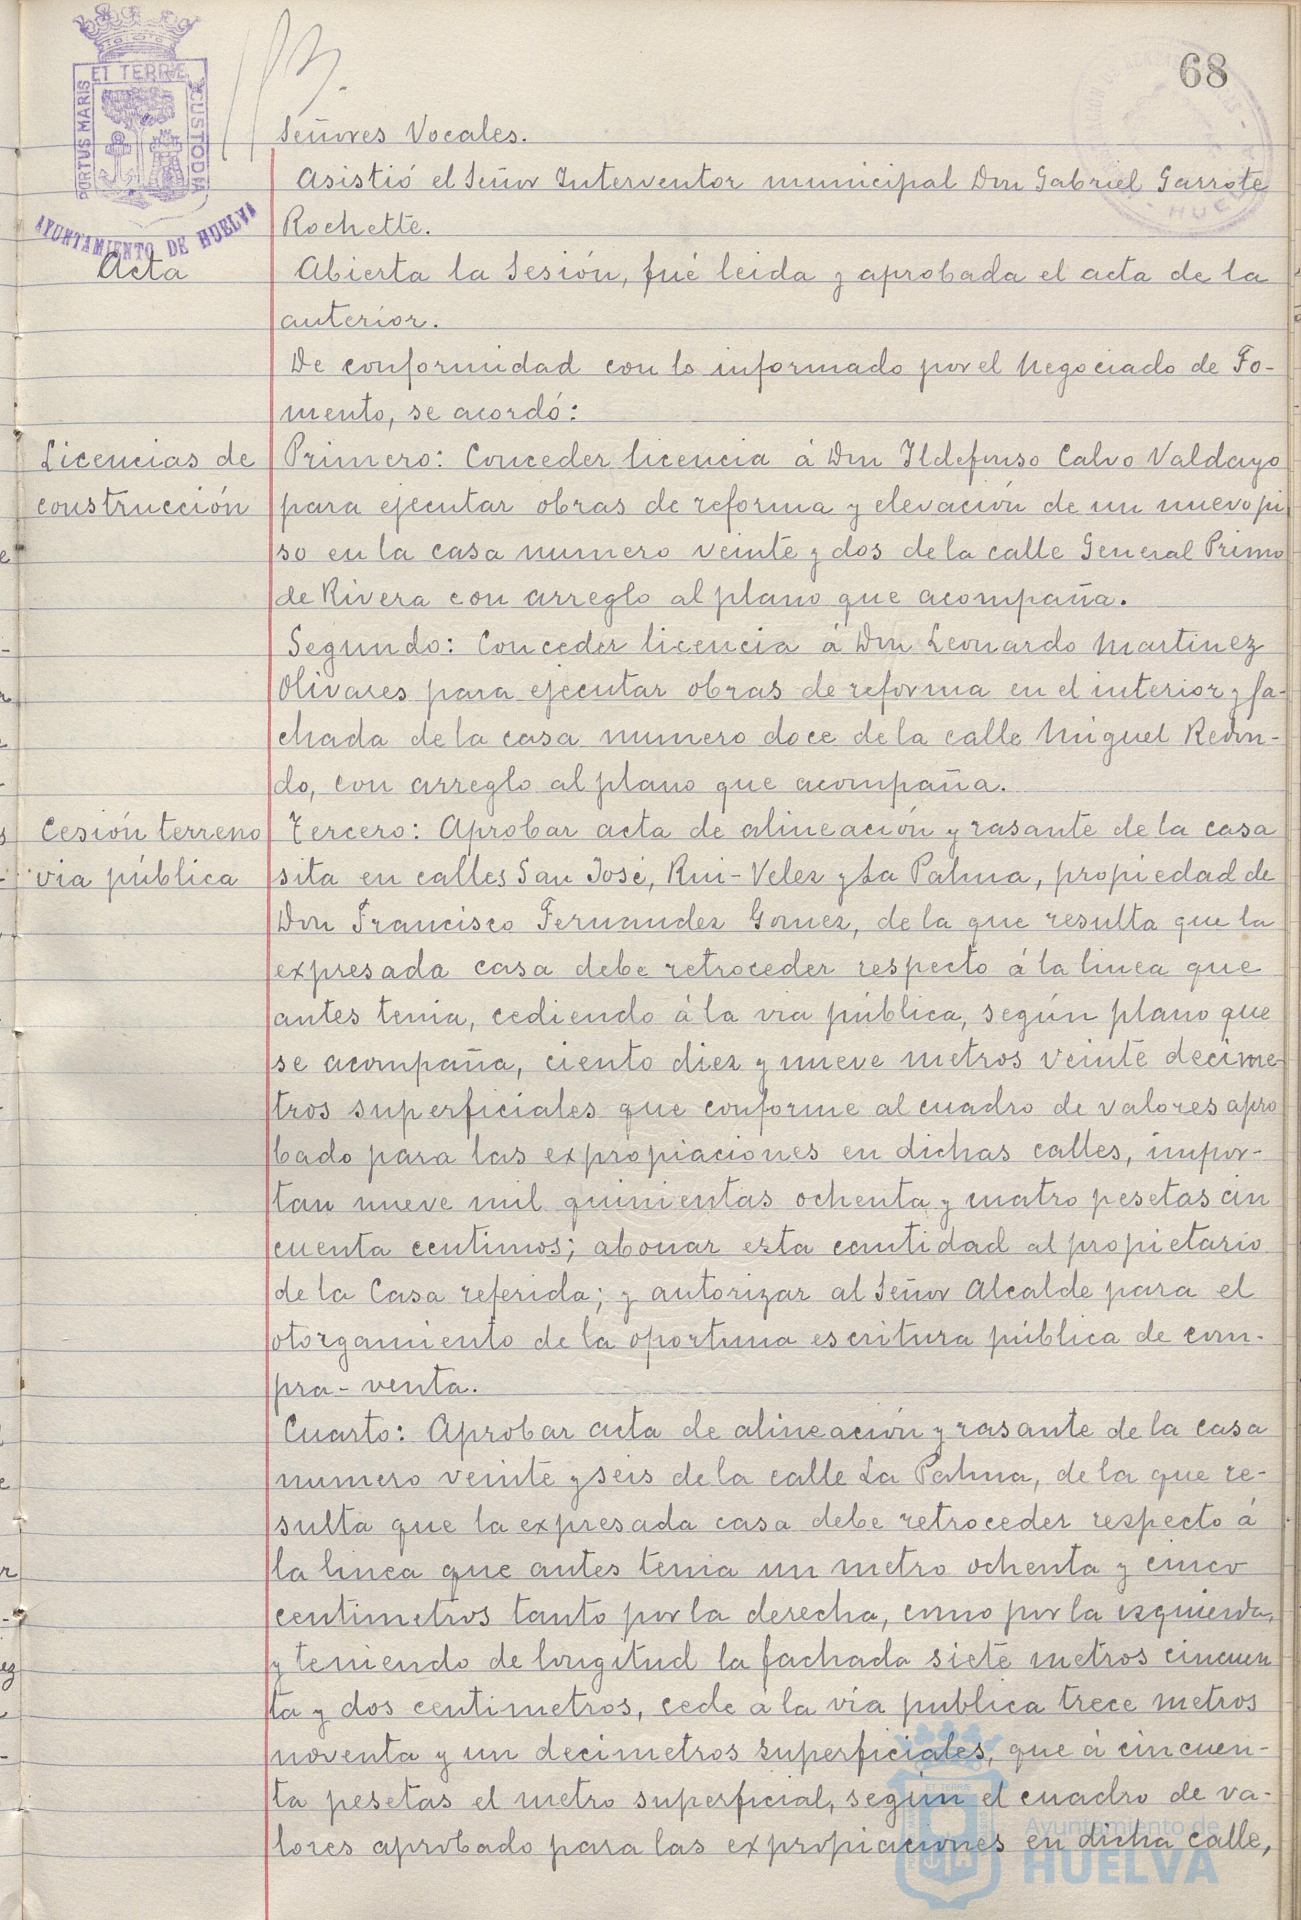 68
PORTUS MARIS ET TERRÆ CUSTODIA
AYUNTAMIENTO DE HUELVA
HUELVA
Señores Vocales.
Asistió el Señor Interventor municipal Don Gabriel Garrote
Rochette.
Acta
Abierta la Sesión, fué leida y aprobada el acta de la
anterior.
De conformidad con lo informado por el Negociado de Fo-
mento, se acordó:
Licencias de
construcción
Primero: Conceder licencia á Don Ildefonso Calvo Valdayo
para ejecutar obras de reforma y elevación de un nuevo pi
so en la casa numero veinte y dos de la calle General Primo
de Rivera con arreglo al plano que acompaña.
Segundo: Conceder licencia á Don Leonardo Martinez
Olivares para ejecutar obras de reforma en el interior y fa-
chada de la casa numero doce de la calle Miguel Redon-
do, con arreglo al plano que acompaña.
Cesión terreno
via pública
Tercero: Aprobar acta de alineación y rasante de la casa
sita en calles San José, Rui-Velez y La Palma, propiedad de
Don Francisco Fernandez Gomez, de la que resulta que la
expresada casa debe retroceder respecto á la linea que
antes tenia, cediendo á la via pública, según plano que
se acompaña, ciento diez y nueve metros veinte decime-
tros superficiales que conforme al cuadro de valores apro
bado para las expropiaciones en dichas calles, impor-
tan nueve mil quinientas ochenta y cuatro pesetas cin
cuenta centimos; abonar esta cantidad al propietario
de la Casa referida; y autorizar al Señor Alcalde para el
otorgamiento de la oportuna escritura pública de com-
pra-venta.
Cuarto: Aprobar acta de alineación y rasante de la casa
numero veinte y seis de la calle La Palma, de la que re-
sulta que la expresada casa debe retroceder respecto á
la linea que antes tenia un metro ochenta y cinco
centimetros tanto por la derecha, como por la izquierda,
y teniendo de longitud la fachada siete metros cincuen
ta y dos centimetros, cede á la via publica trece metros
noventa y un decimetros superficiales, que á cincuen-
ta pesetas el metro superficial, según el cuadro de va-
lores aprobado para las expropiaciones en dicha calle,
Ayuntamiento de
HUELVA